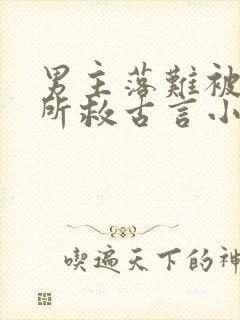 男主落難被
所救古言小
喫遍天下的神